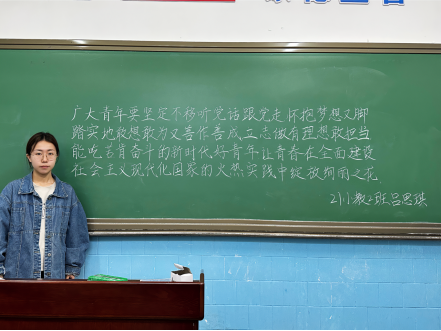 广大青年要坚定不移听党话跟党走怀抱梦想又脚
踏实地敢想敢为又善作善成立志做有理想敢担当
能吃苦肯奋斗的新时代好青年让青春在全面建设
社会主义现代化国家的火热实践中绽放绚丽之花
21小教二班吕思琪